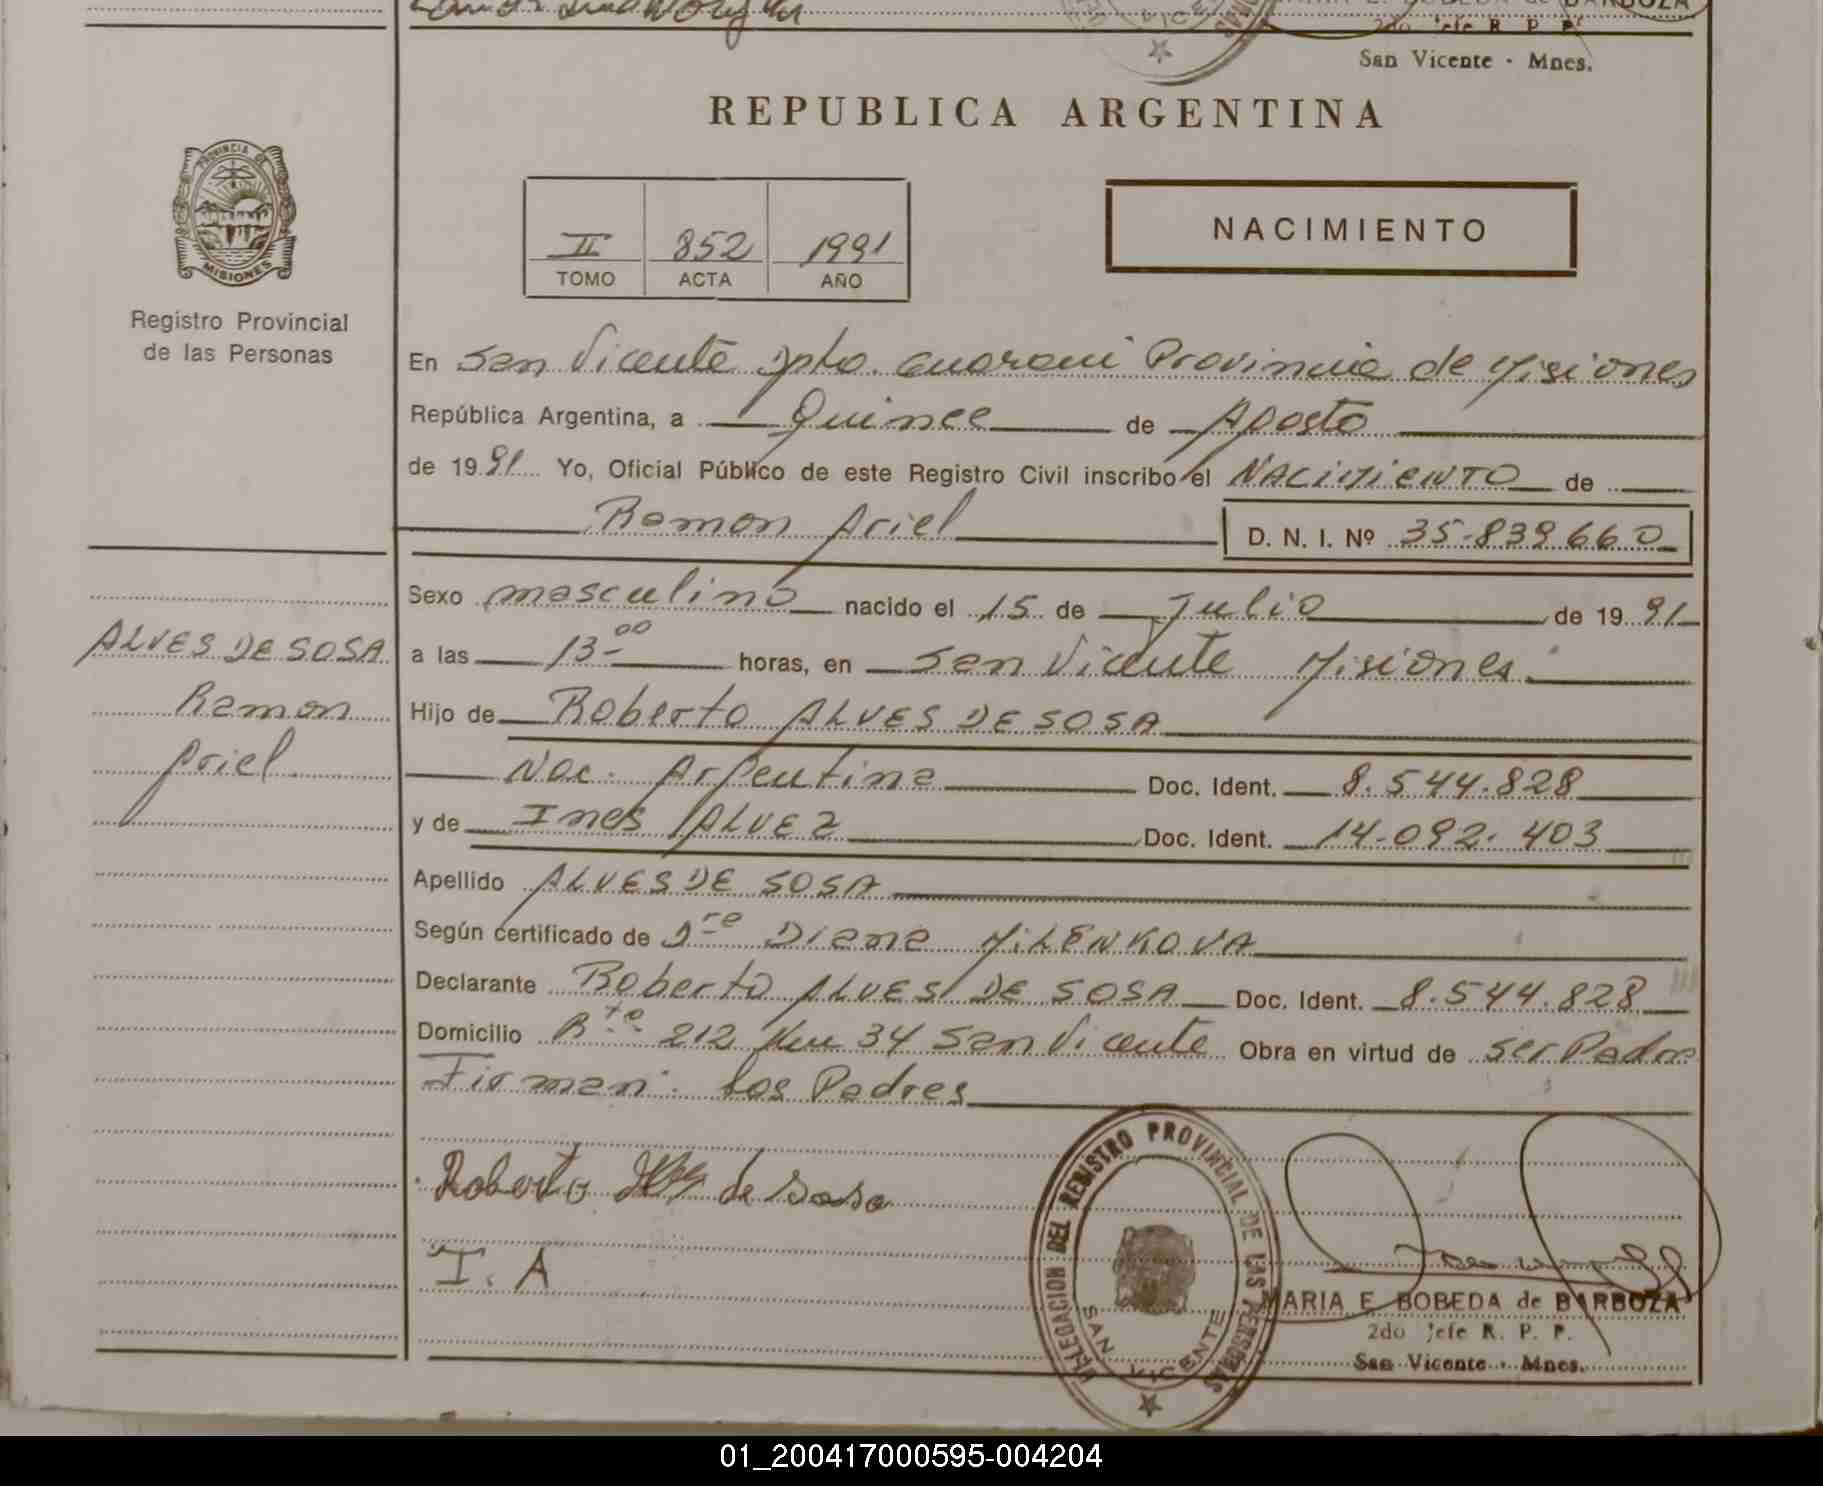 2do Jefe R. P. P.
San Vicente - Mnes.
REPUBLICA ARGENTINA
PROVINCIA DE
MISIONES
Registro Provincial
de las Personas
II 852 1991
TOMO ACTA AÑO
NACIMIENTO
En San Vicente Dpto. Guarani Provincia de Misiones
República Argentina, a Quince de Agosto
de 1991 Yo, Oficial Público de este Registro Civil inscribo el NACIMIENTO de
Ramon Ariel D. N. I. Nº 35.839.660
Sexo masculino nacido el 15 de Julio de 1991
a las 13-00 horas, en San Vicente Misiones.
Hijo de Roberto ALVES DE SOSA
Nac. Argentina Doc. Ident. 8.544.828
y de Ines ALVEZ Doc. Ident. 14.092.403
Apellido ALVES DE SOSA
Según certificado de Dra Diana MILENKOVA
Declarante Roberto ALVES DE SOSA Doc. Ident. 8.544.828
Domicilio Rta 212 Km 34 San Vicente Obra en virtud de ser Padre
Firman: los Padres
ALVES DE SOSA
Ramon
Ariel
Roberto Alves de Sosa
I. A
DELEGACION DEL REGISTRO PROVINCIAL DE LAS PERSONAS
SAN VICENTE
MARIA E. BOBEDA de BARBOZA
2do Jefe R. P. P.
San Vicente - Mnes.
01_200417000595-004204